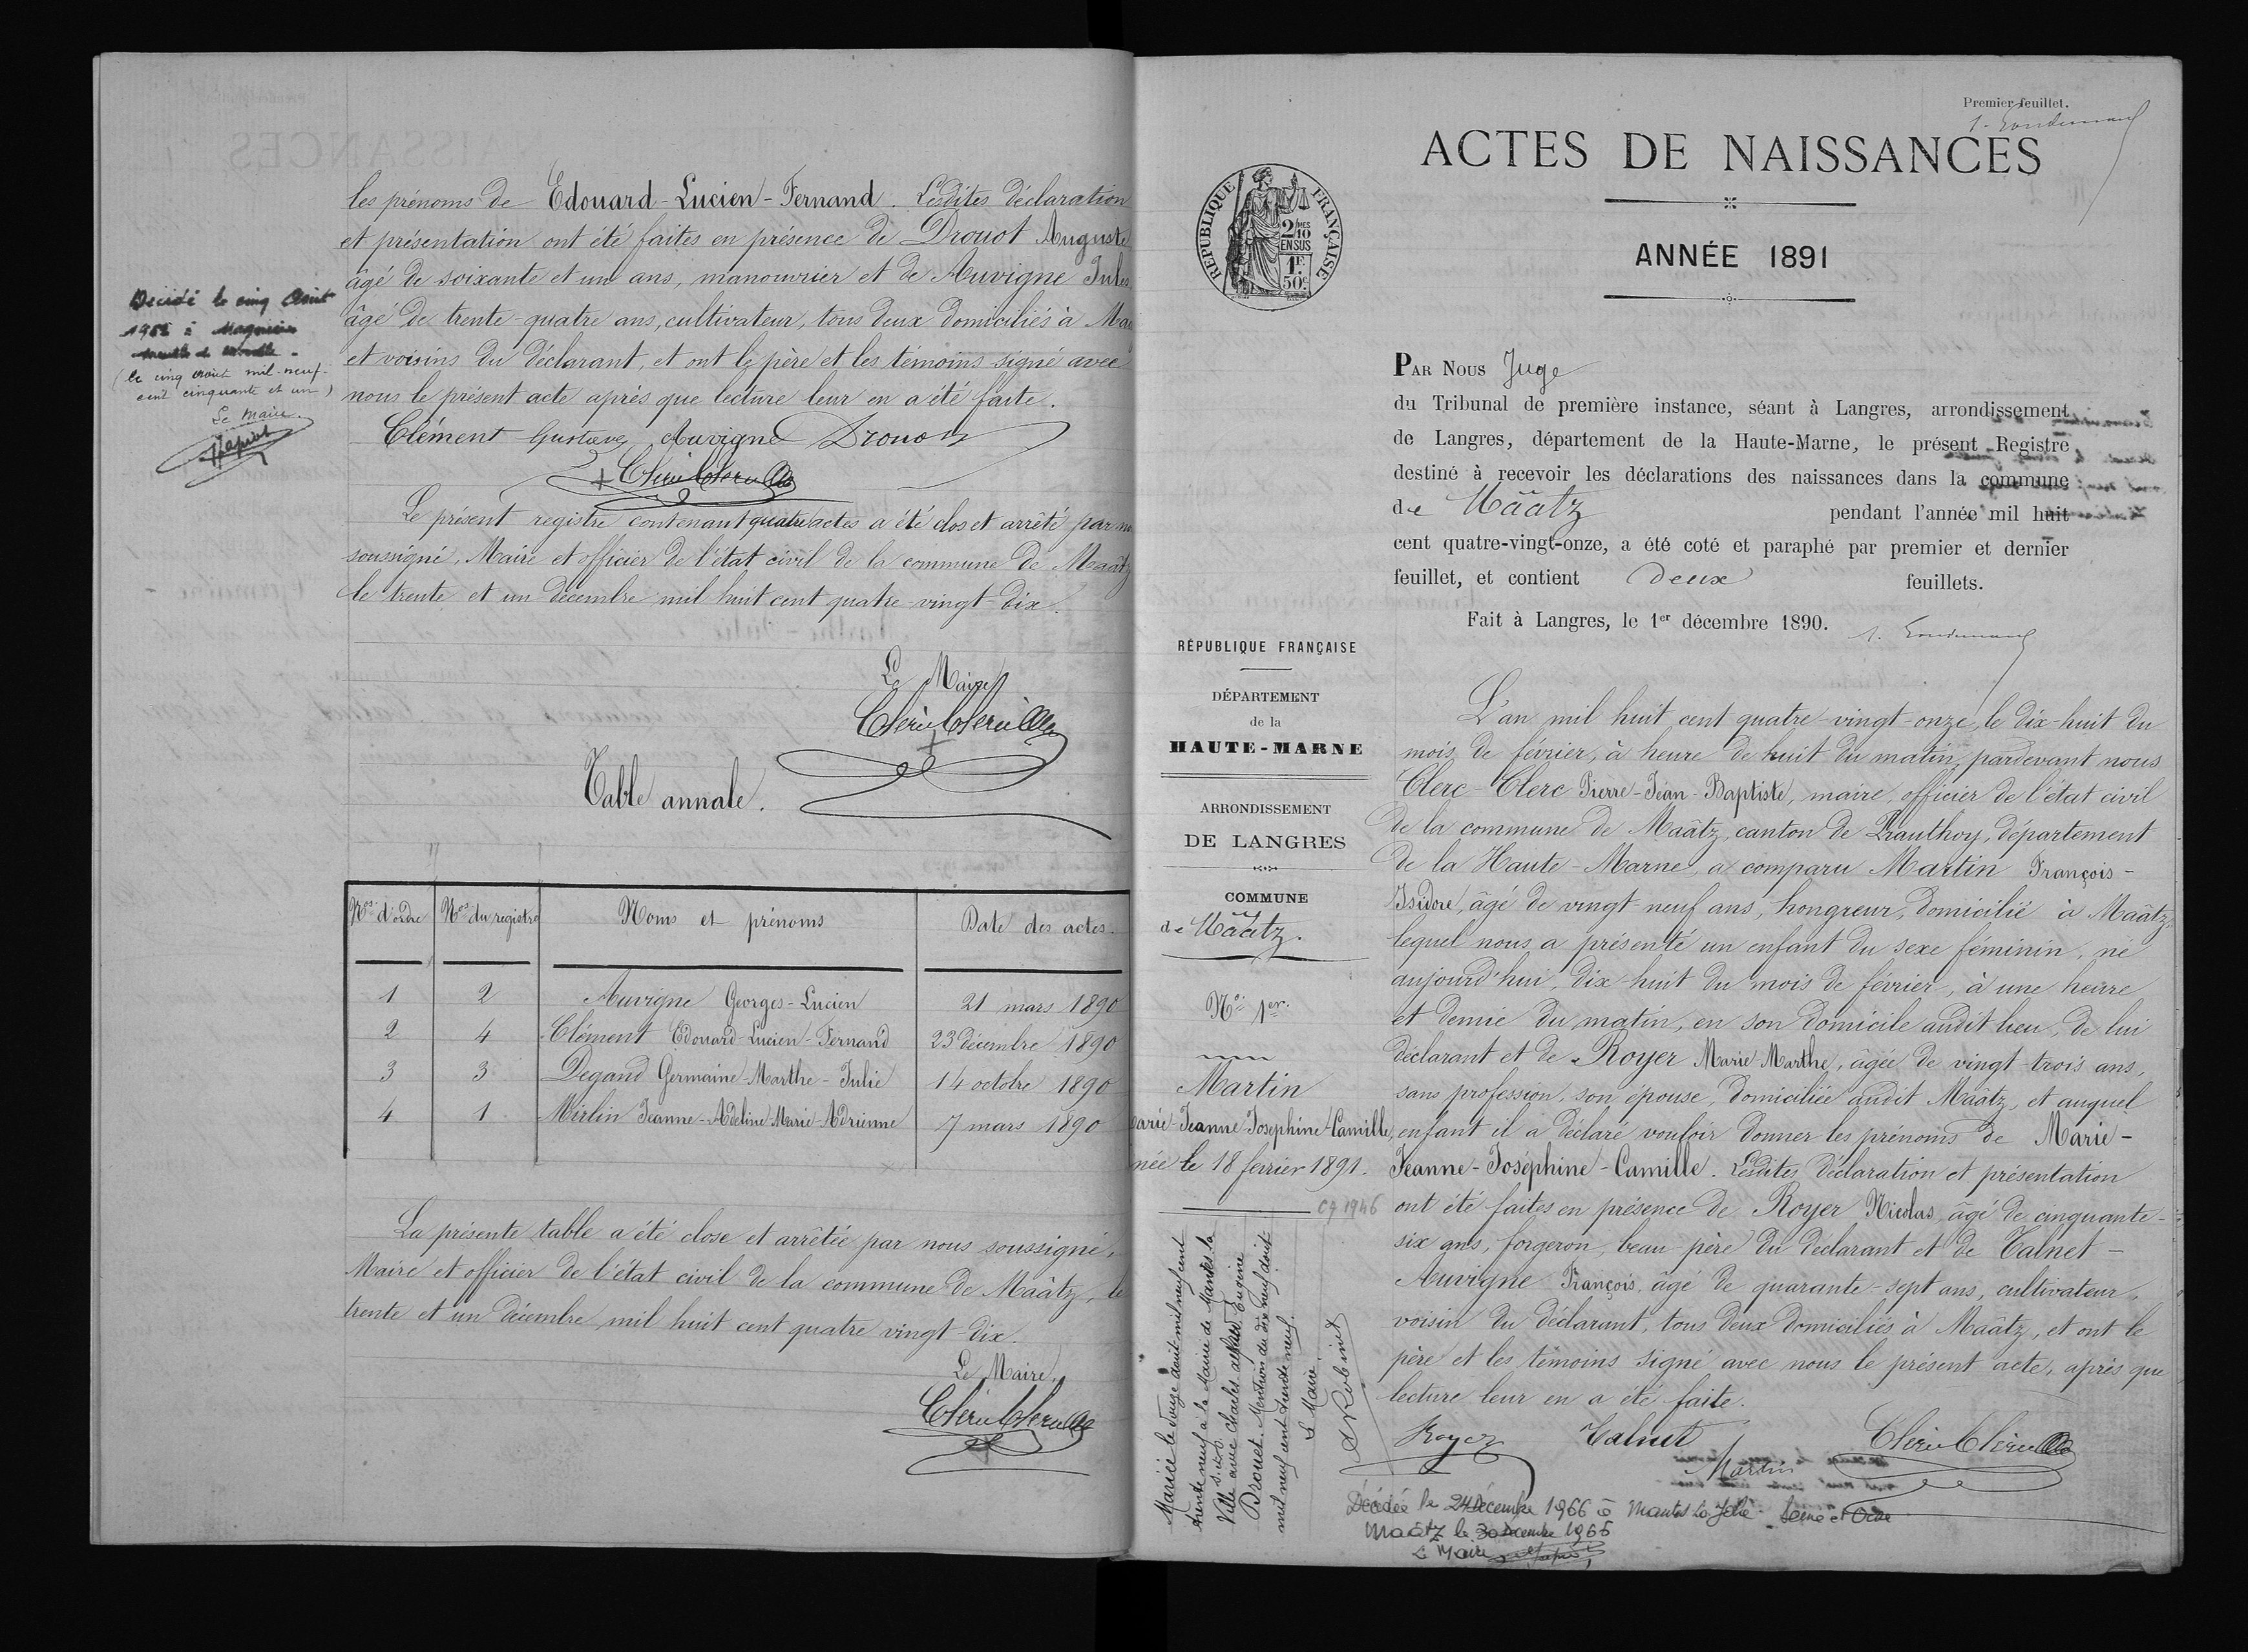 les prénoms de Edouard-Lucien-Fernand. Lesdites déclaration
et présentation ont été faites en présence de Drouot Auguste
âgé de soixante et un ans, manouvrier et de Auvigne Jules
âgé de trente-quatre ans, cultivateur, tous deux domiciliés à Maâ
et voisins du déclarant, et ont le père et les témoins signé avec
nous le présent acte après que lecture leur en a été faite.
Clément Gustave Auvigne Drouot
Décidé le cinq Août
(le cinq août mil-neuf-
cent cinquante et un)
Le Maire
Le présent registre contenant quatre actes a été clos et arrêté par nous
soussigné, Maire et officier de l'état civil de la commune de Maâtz
le trente et un décembre mil huit cent quatre vingt-dix.
Le Maire
Table annale.
Nos d'ordre Nos du registre Noms et prénoms Date des actes.
1 2 Auvigne Georges-Lucien 21 mars 1890
2 4 Clément Edouard-Lucien-Fernand 23 décembre 1890
3 3 Degand Germaine-Marthe-Julie 14 octobre 1890
4 1 Mirlin Jeanne-Adeline-Marie-Adrienne 7 mars 1890
La présente table a été close et arrêtée par nous soussigné,
Maire et officier de l'état civil de la commune de Maâtz, le
trente et un décembre mil huit cent quatre vingt-dix.
Le Maire,
Premier feuillet.
ACTES DE NAISSANCES
ANNÉE 1891
RÉPUBLIQUE FRANÇAISE
2/10MES
EN SUS
1F
50c
PAR NOUS Juge
du Tribunal de première instance, séant à Langres, arrondissement
de Langres, département de la Haute-Marne, le présent Registre
destiné à recevoir les déclarations des naissances dans la commune
de Maâtz pendant l'année mil huit
cent quatre-vingt-onze, a été coté et paraphé par premier et dernier
feuillet, et contient deux feuillets.
Fait à Langres, le 1er décembre 1890.
RÉPUBLIQUE FRANÇAISE
DÉPARTEMENT
de la
HAUTE-MARNE
ARRONDISSEMENT
DE LANGRES
COMMUNE
de Maâtz.
No 1er.
Martin
Marie-Jeanne-Joséphine-Camille,
née le 18 février 1891.
C7 1946
L'an mil huit cent quatre-vingt-onze, le dix-huit du
mois de février, à heure de huit du matin, pardevant nous
Clerc-Clerc Pierre-Jean-Baptiste, maire, officier de l'état civil
de la commune de Maâtz, canton de Prauthoy, département
de la Haute-Marne, a comparu Martin François-
Isidore, âgé de vingt neuf ans, hongreur, domicilié à Maâtz,
lequel nous a présenté un enfant du sexe féminin, né
aujourd'hui, dix-huit du mois de février, à une heure
et demie du matin, en son domicile audit lieu, de lui
déclarant et de Royer Marie Marthe, âgée de vingt-trois ans,
sans profession, son épouse, domiciliée audit Maâtz, et auquel
enfant il a déclaré vouloir donner les prénoms de Marie-
Jeanne-Joséphine-Camille. Lesdites déclaration et présentation
ont été faites en présence de Royer Nicolas, âgé de cinquante-
six ans, forgeron, beau-père du déclarant et de Talnet-
Auvigne François, âgé de quarante-sept ans, cultivateur,
voisin du déclarant, tous deux domiciliés à Maâtz, et ont le
père et les témoins signé avec nous le présent acte, après que
lecture leur en a été faite.
Royer Talnet
Martin
Mariée le douze août mil neuf cent
trente neuf à la Mairie de Mantes la
Ville S. et O.
avec Charles Alfred Eugène
Drouet. Mention du dix neuf août
mil neuf cent trente neuf.
Le Maire.
Décédée le 24 Décembre 1966 à Mantes la Jolie. Seine et Oise
Maâtz le 30 Décembre 1966
Le Maire